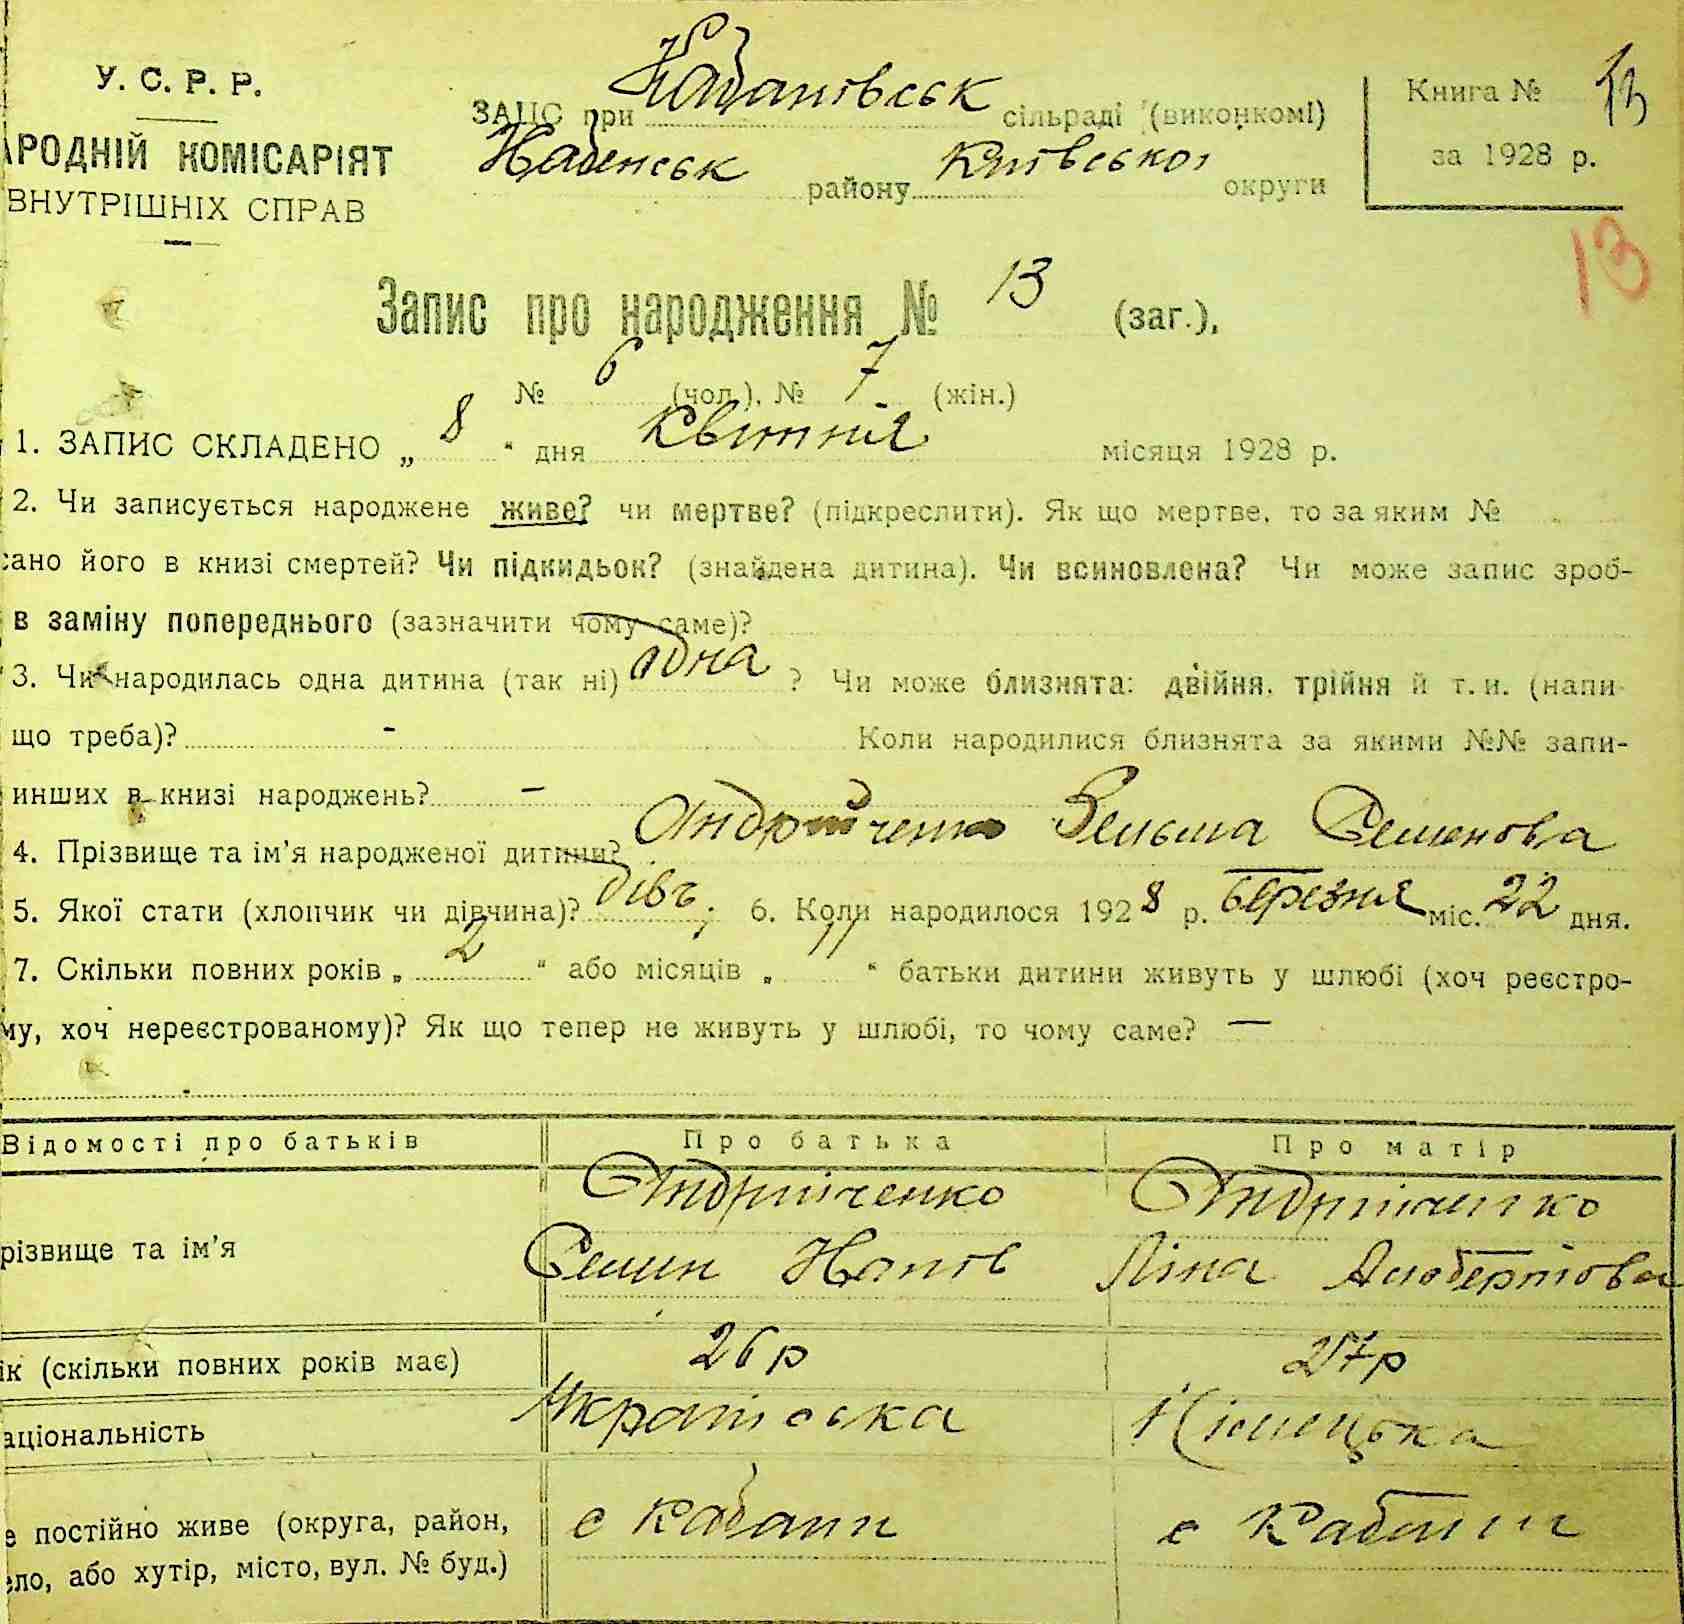 У. С. Р. Р.
АРОДНІЙ КОМІСАРІЯТ
ВНУТРІШНІХ СПРАВ
ЗАЦС при Кабанівськ сільраді (виконкомі)
району Київської округи
Книга № 13
за 1928 р.
13
Запис про народження № 13 (заг.),
№ 6 (чол.), № 7 (жін.)
1. ЗАПИС СКЛАДЕНО „ 8 “ дня Квітня місяця 1928 р.
2. Чи записується народжене живе? чи мертве? (підкреслити). Як що мертве, то за яким №
сано його в книзі смертей? Чи підкидьок? (знайдена дитина). Чи всиновлена? Чи може запис зроб-
в заміну попереднього (зазначити чому саме)?
3. Чи народилась одна дитина (так ні) одна ? Чи може близнята: двійня, трійня й т. и. (напи
що треба)? - Коли народилися близнята за якими №№ запи-
инших в книзі народжень? —
4. Прізвище та ім’я народженої дитини? Андрійченко Вельма Семенова
5. Якої стати (хлопчик чи дівчина)? дівч. 6. Коли народилося 1928 р. березня міс. 22 дня.
7. Скільки повних років „ 2 “ або місяців „ 11 “ батьки дитини живуть у шлюбі (хоч реєстро-
му, хоч нереєстрованому)? Як що тепер не живуть у шлюбі, то чому саме? —
Відомості про батьків Про батька Про матір
різвище та ім’я Андрійченко Андрійченко
Семен Ліна
ік (скільки повних років має) 26 р 27 р
аціональність Українська Німецька
е постійно живе (округа, район, с Кабани с Кабани
ело, або хутір, місто, вул. № буд.)